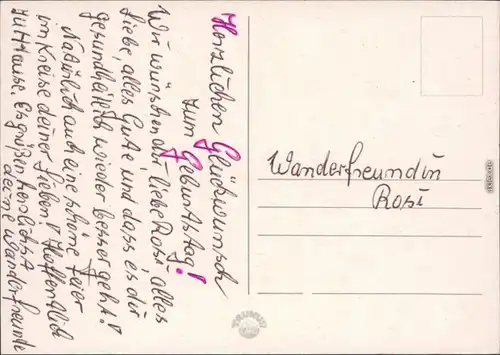 Herzlichen Glückwunsch
zum Geburtstag!
Wir wünschen dir, liebe Rosi, alles
Liebe, alles Gute und dass es dir
gesundheitlich wieder besser geht!
Natürlich auch eine schöne Feier
im Kreise deiner Lieben!
zu Hause. Es grüßen herzlichst
deine Wanderfreunde
Wanderfreundin
Rosi